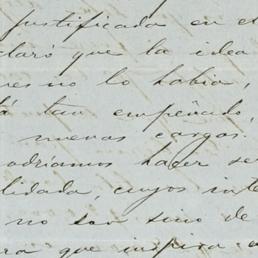 justificada en el
claró que la idea
ues no lo habia,
tá tan empeñado,
nuevas cargas.
odríamos hacer se
lidada, cuyos inte
no son sino de
ra que inspira